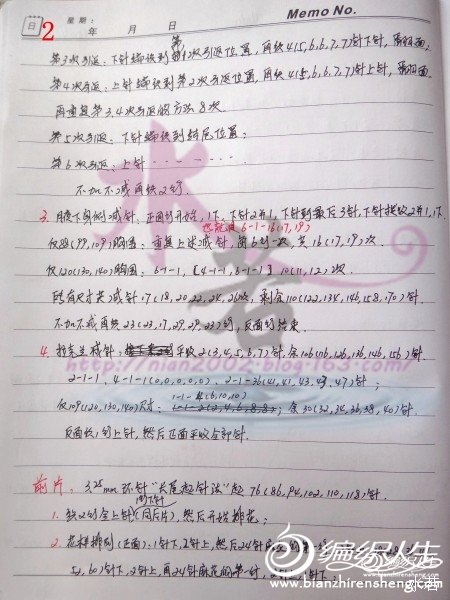 日 2 星期： Memo No.
年 月 日
第3次引返：下针编织到第1次引返位置，再织4(5,6,6,7,7)针下针，翻面；
第4次引返：上针编织到第2次引返位置，再织4(5,6,6,7,7)针上针，翻面
再重复第3.4次引返的方法8次.
第5次引返：下针编织到结尾位置；
第6次引返：上针
不加不减再织2行.
3. 腋下身侧减针：正面行开始，1下，下针2并1，下针到最后3针，下针拨收2并1，1下.
6-1-16(17,19)
仅 (99,109)胸围：重复上述减针，第6行一次，共16(17,19)次.
仅120(130,140)胸围：6-1-1，【4-1-1，6-1-1】10(11,12)次.
所有尺寸共减针17(18,20,22,24,26)次，剩余110(122,134,146,158,170)针
不加不减再织23(23,17,29,29,23)行，反面行结束.
4. 平收2(3,4,5,6,7)针，余106(116,126,136,146,156)针
2-1-1，4-1-1(0,0,0,0,0)，2-1-38(41,41,43,43,47)针；
1-1-4(6,10,10)
仅109(120,130,140)尺寸： ；余30(32,34,36,38,40)针.
反面织1行上针，然后正面平收全部针.
前片：3.25mm环针"长尾起针法"起76(86,94,102,110,118)针.
1. 织2行全上针(同后片)，然后开始排花；
2. 花样排列(正面)：1针下，2针上，然后24针麻花
52,60)针下，2针上，再24针麻花的第一针，2针上，1针下；
水
若
http://nian2002.blog.163.com/
编织人生
www.bianzhirensheng.com
水若